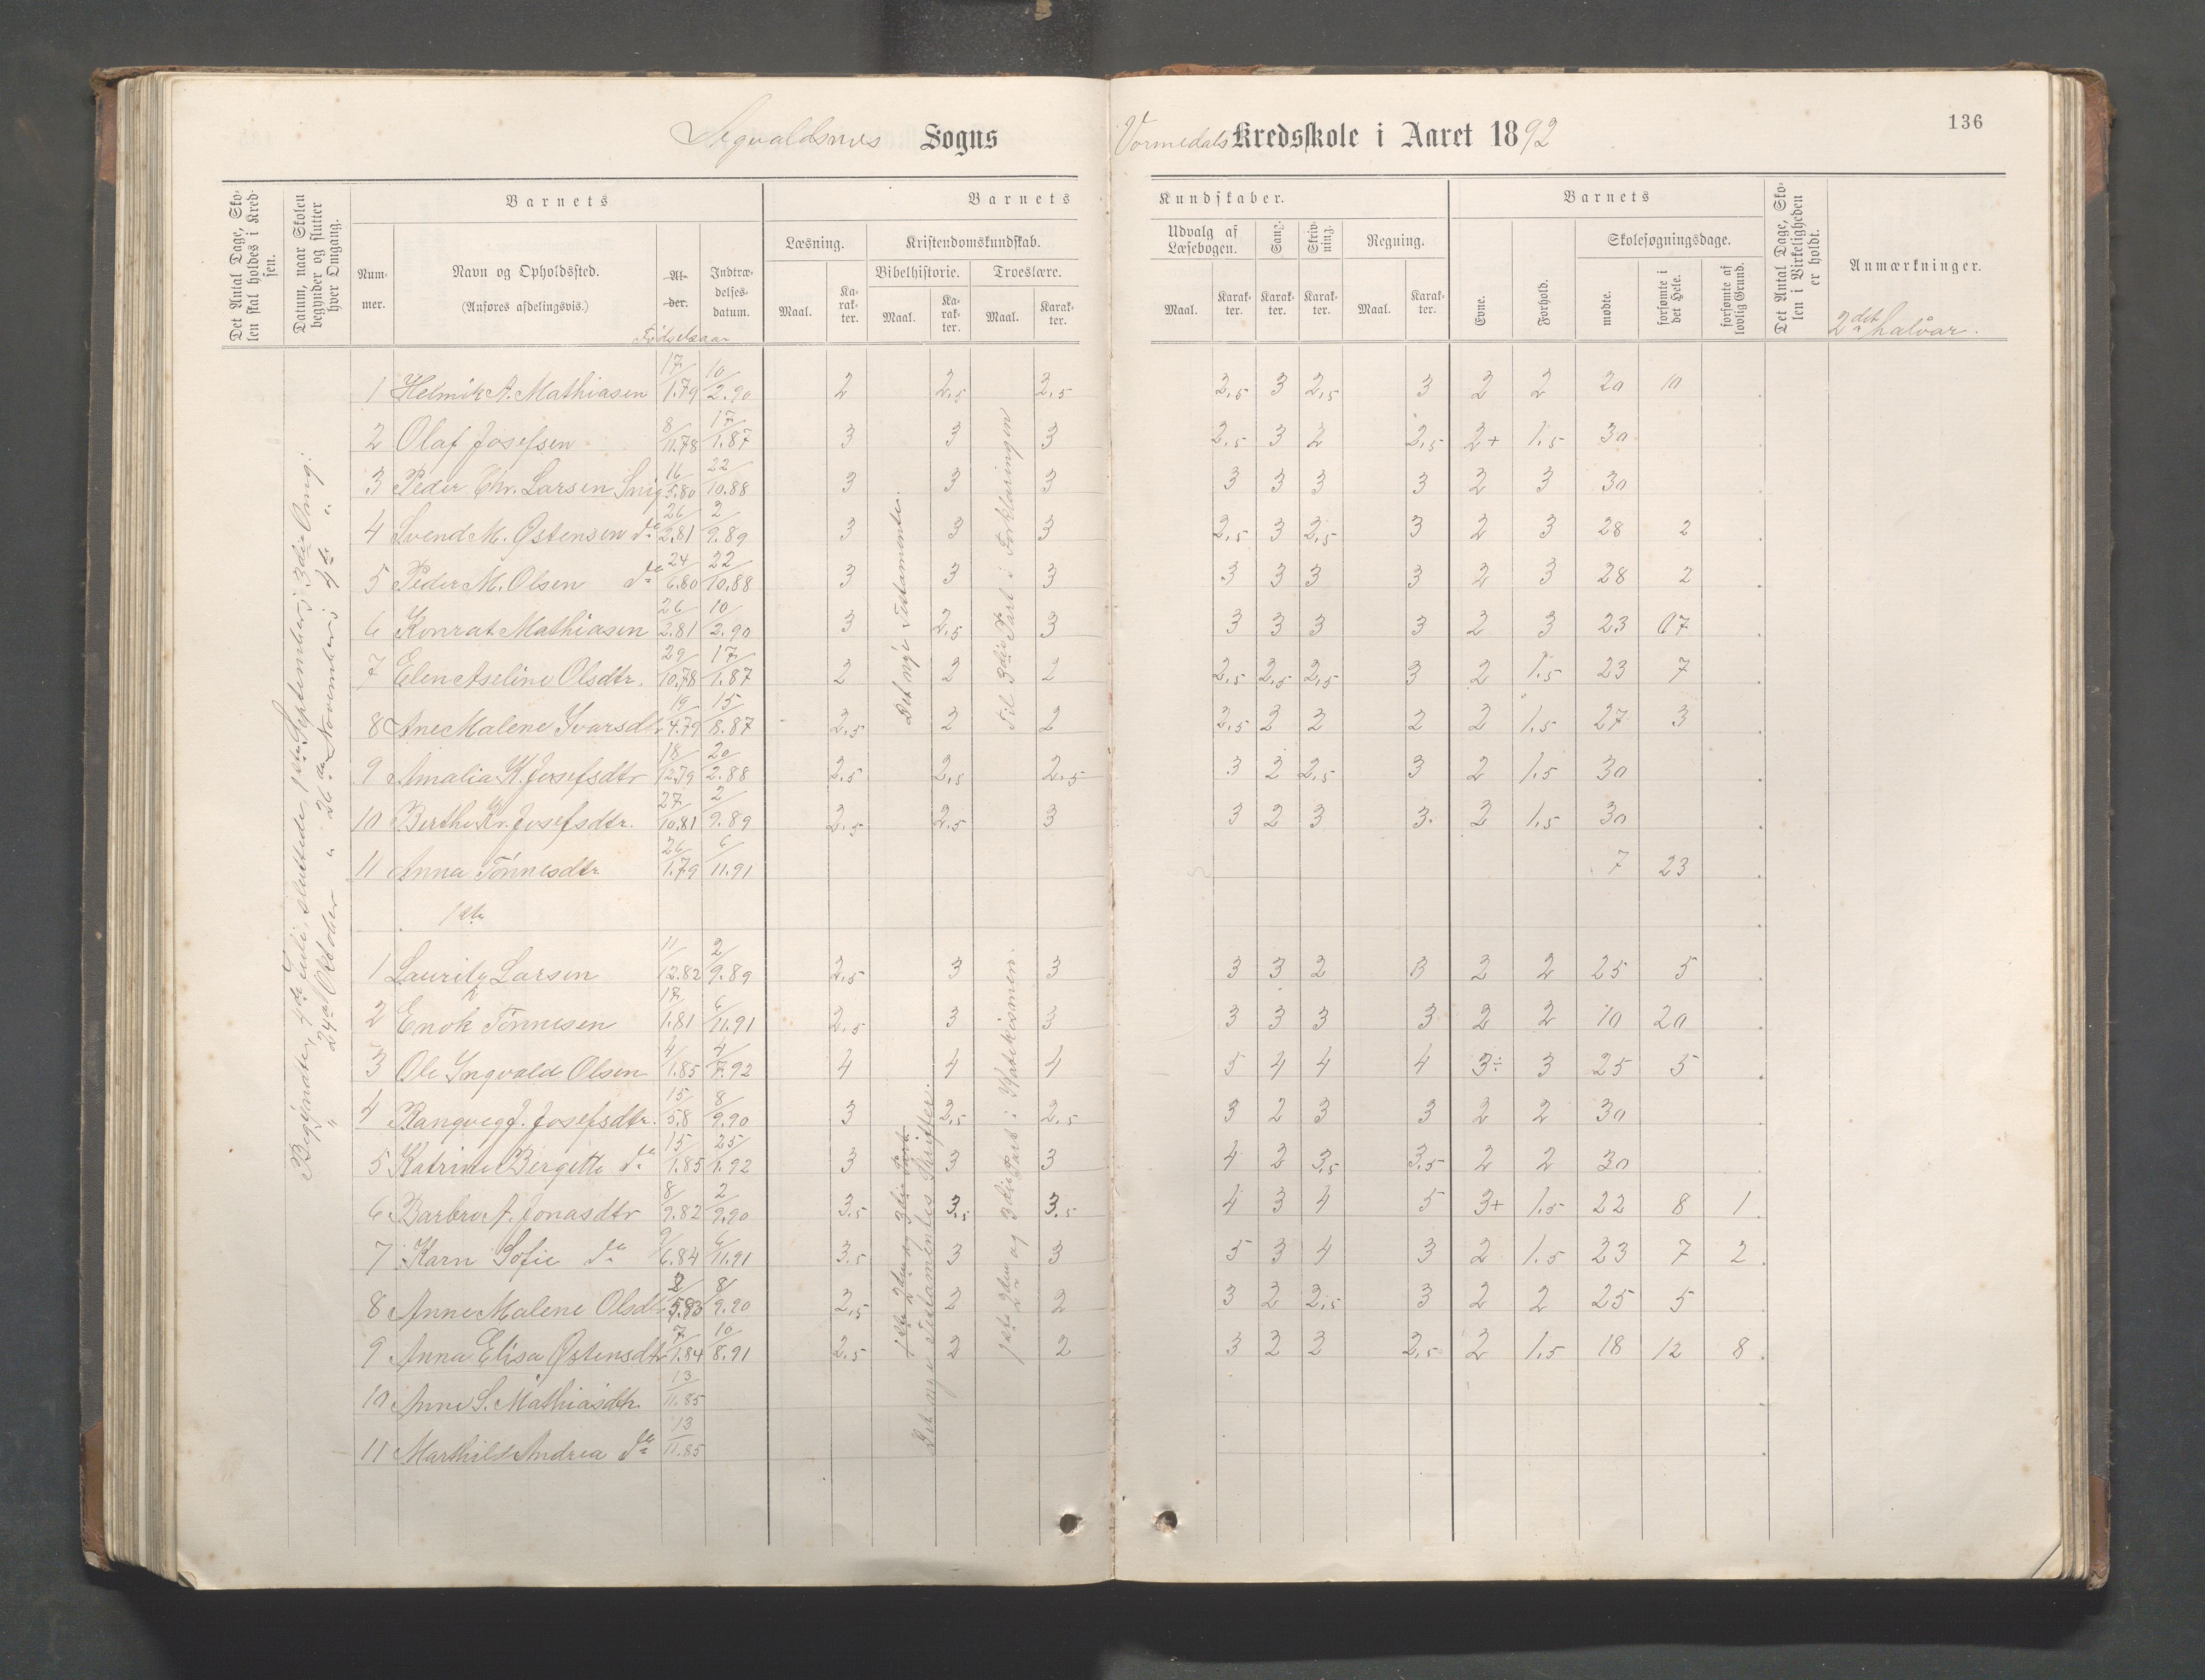 136
Sogns Vormedals Kredsskole i Aaret 1892
Det Antal Dage, Skolen skal holdes i Kredsen.
Datum, naar Skolen begynder og slutter hver Omgang.
Barnets
Num-mer.
Navn og Opholdssted.
(Anføres afdelingsvis.)
Al-der.
Fødselsaar
Indtræ-delses-datum.
Barnets Kundskaber.
Læsning.
Maal.
Ka-rak-ter.
Kristendomskundskab.
Bibelhistorie.
Maal.
Ka-rak-ter.
Troeslære.
Maal.
Karak-ter.
Udvalg af Læsebogen.
Maal.
Karak-ter.
Sang.
Karak-ter.
Skriv-ning.
Karak-ter.
Regning.
Maal.
Karak-ter.
Barnets
Evne.
Forhold.
Skolesøgningsdage.
mødte.
forsømte i det Hele.
forsømte af lovlig Grund.
Det Antal Dage, Skolen i Virkeligheden er holdt.
Anmærkninger.
2det halvår.
Det nye Testamente.
Til 3die Part i Forklaringen
1 Helmik A. Mathiasen 17/1.79 10/2.90 2 2,5 2,5 2,5 3 2,5 3 2 2 20 10
2 Olaf Josefsen 8/11.78 17/1.87 3 3 3 2,5 3 2 2,5 2+ 1,5 30
3 Peder Chr. Larsen Snig 16/5.80 22/10.88 3 3 3 3 3 3 3 2 3 30
4 Svend M. Østensen do 26/2.81 2/9.89 3 3 3 2,5 3 2,5 3 2 3 28 2
5 Peder M. Olsen do 24/6.80 22/10.88 3 3 3 3 3 3 3 2 3 28 2
6 Konrat Mathiasen 26/2.81 10/2.90 3 2,5 3 3 3 3 3 2 3 23 07
7 Elen Aseline Olsdtr. 29/10.78 17/1.87 2 2 2 2,5 2,5 2,5 3 2 1,5 23 7
8 Ane Malene Ivarsdtr 19/4.79 15/8.87 2,5 2 2 2,5 2 2 2 2 1,5 27 3
9 Amalia K. Josefsdtr 18/12.79 20/2.88 2,5 2,5 2,5 3 2 2,5 3 2 1,5 30
10 Berthe Kr. Josefsdtr. 27/10.81 2/9.89 2,5 2,5 3 3 2 3 3. 2 1,5 30
11 Anna Tønnesdtr 26/1.79 6/11.91 7 23
1ste
1 Lauritz Larsen 11/12.82 2/9.89 2,5 3 3 3 3 2 3 2 2 25 5
2 Enok Tønnesen 17/1.81 6/11.91 2,5 3 3 3 3 3 3 2 2 10 20
3 Ole Ingvald Olsen 4/1.85 4/7.92 4 4 4 5 4 4 4 3÷ 3 25 5
4 Rangveg J. Josefsdtr. 15/5.8 8/9.90 3 2,5 2,5 3 2 3 3 2 2 30
5 Katrine Bergette do 15/1.85 25/1.92 3 3 3 4 2 3,5 3,5 2 2 30
6 Barbro A. Jonasdtr 8/9.82 2/9.90 3,5 3,5 3,5 4 3 4 5 3+ 1,5 22 8 1
7 Karn Sofie do 9/6.84 6/11.91 3,5 3 3 5 3 4 3 2 1,5 23 7 2
8 Anne Malene Olsdtr 2/5.83 8/9.90 2,5 2 2 3 2 2,5 3 2 2 25 5
9 Anna Elisa Østensdtr 7/1.84 10/8.91 2,5 2 2 3 2 2 2,5 2 1,5 18 12 8
10 Anne S. Mathiasdtr. 13/11.85
11 Marthilde Andrea do 13/11.85
1ste 2den og 3die Part
Det nye Testamentes Skrifter.
1ste 2den og 3die Part i Katekismen.